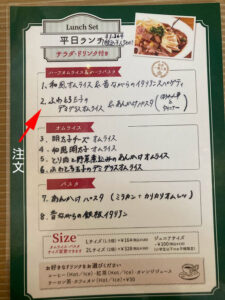 Lunch Set
平日ランチ
サラダ・ドリンク付き
ハーフオムライス&ハーフパスタ
1. 和風オムライス & 昔ながらのイタリアンスパゲティ
2. ふわとろ玉子の
デミグラスオムライス & あんかけパスタ
注文
オムライス
3. 明太子チーズ オムライス
4. 和風明太子 オムライス
5. とり肉と野菜煮込みのあんかけオムライス
6. ふわとろ玉子のデミグラスオムライス
パスタ
7. あんかけパスタ
8. 昔ながらの鉄板イタリアン
Size
オムライス・パスタ
サイズ変更できます
Lサイズ
2Lサイズ
ジュニアサイズ
お好きなドリンクをお選びください
コーヒー (Hot/Ice) 紅茶 (Hot/Ice) オレンジジュース
ウーロン茶